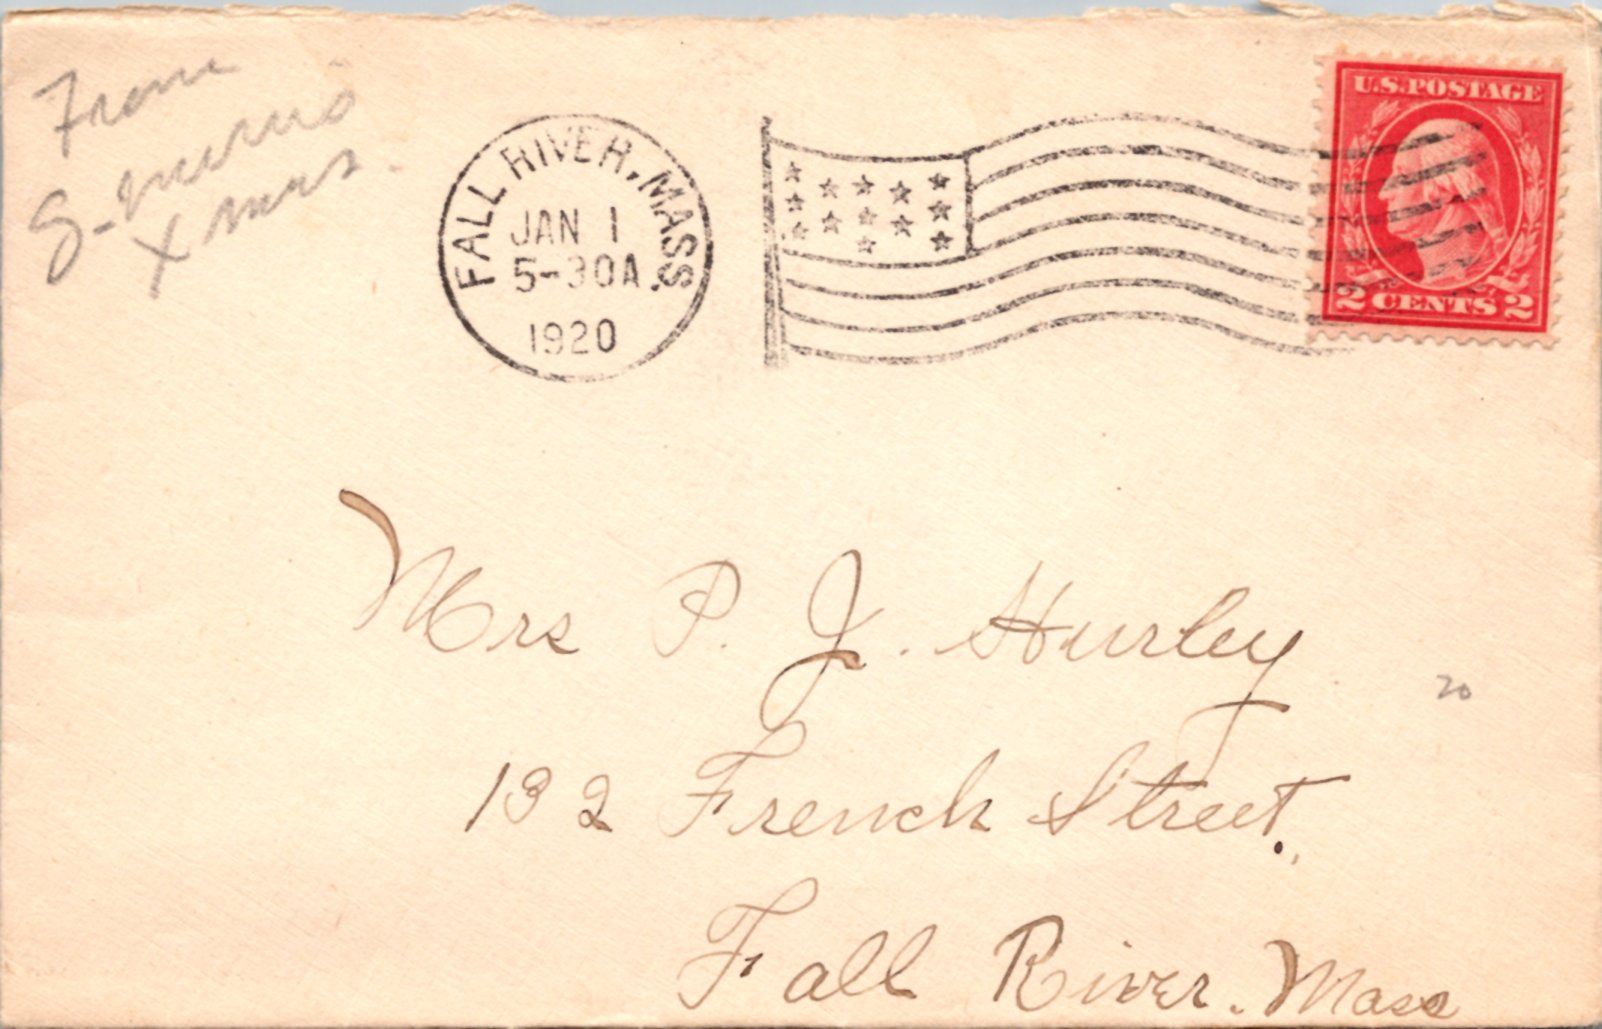 From
Xmas.
FALL RIVER, MASS.
JAN 1
5-30A
1920
U.S. POSTAGE
2 CENTS 2
Mrs P. J. Hurley
132 French Street.
Fall River. Mass
20